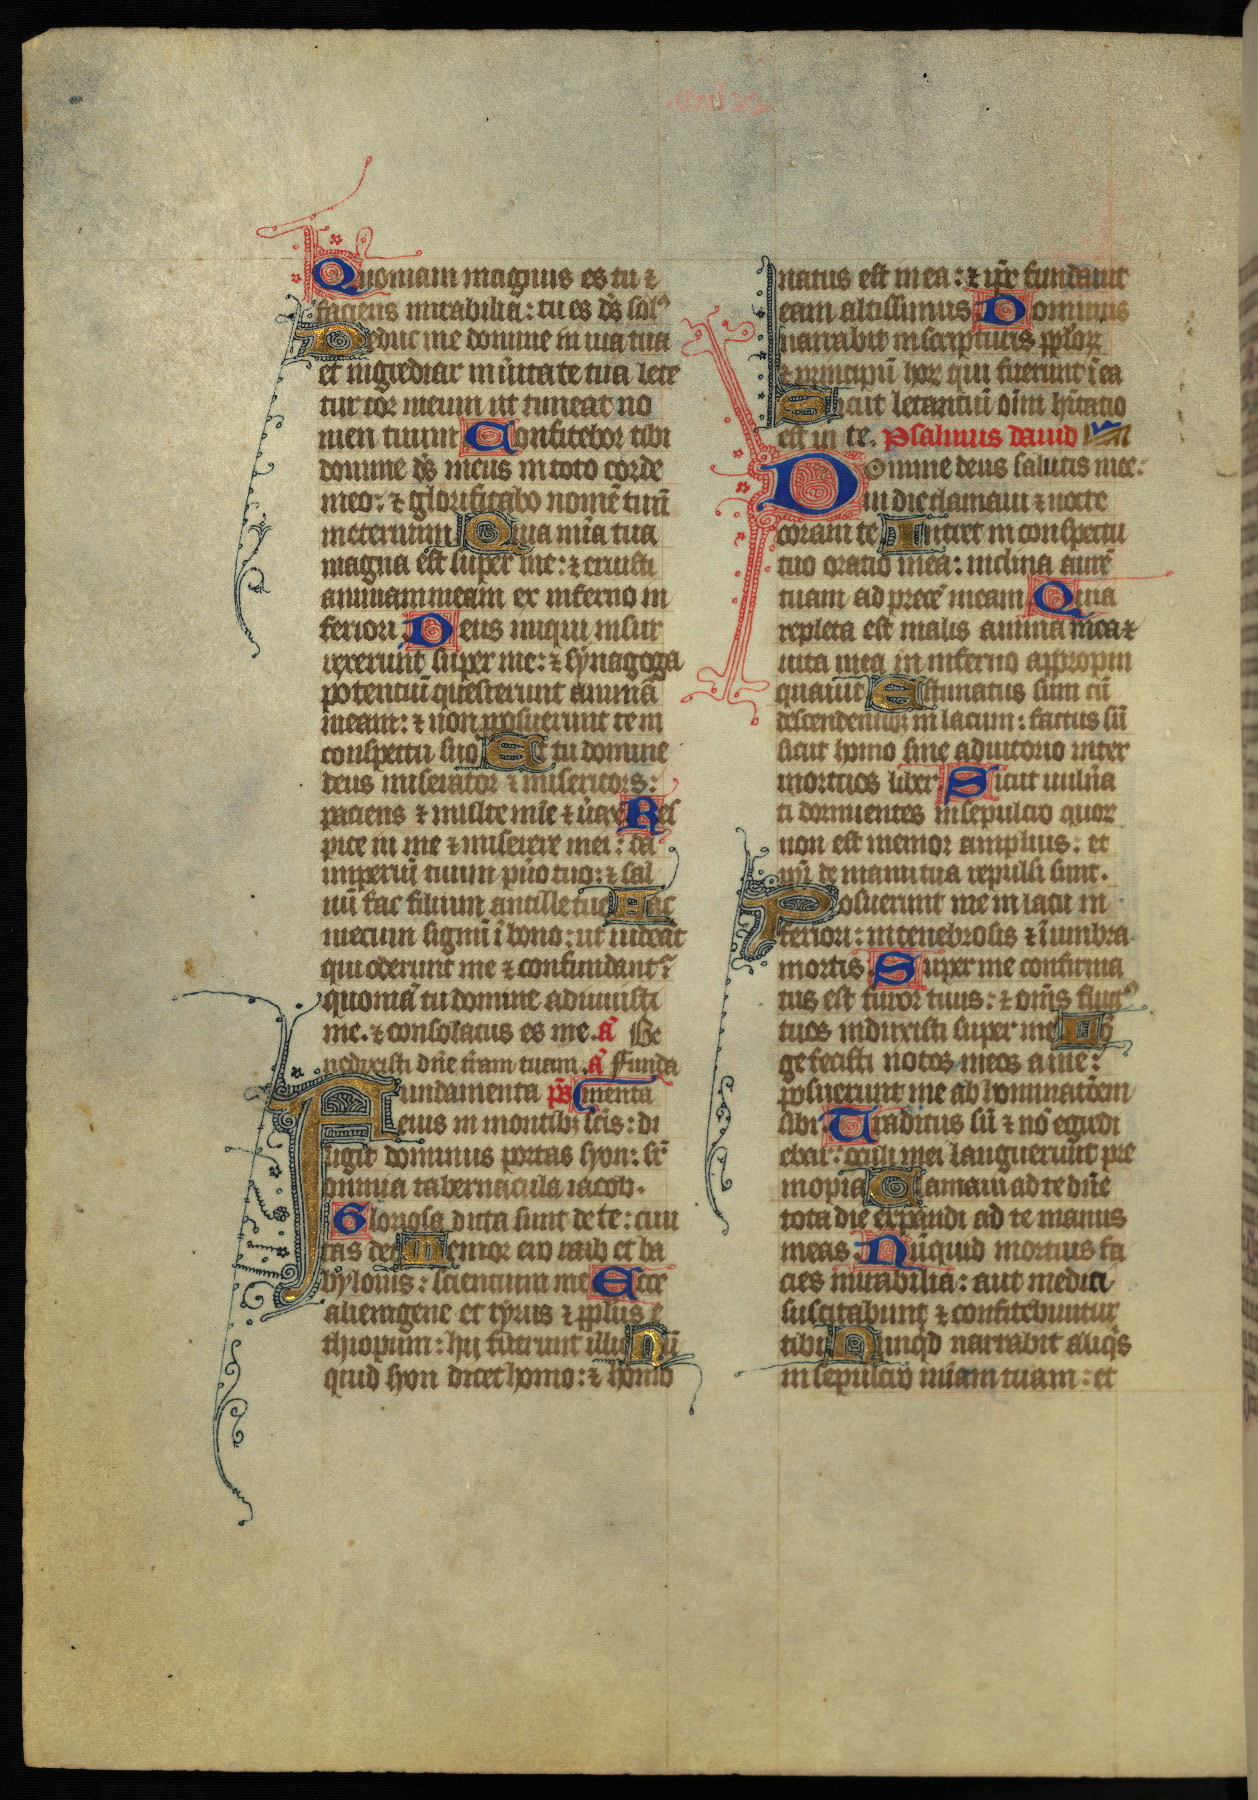 Quoniam magnus es tu ⁊
faciens mirabilia: tu es ds̄ solꝰ
Deduc me domine in uia tua
et ingrediar in ūitate tua lete
tur cor meum ut timeat no
men tuum Confitebor tibi
domine ds̄ meus in toto corde
meo: ⁊ glorificabo nomē tuū
in eternum Quia mīa tua
magna est super me: ⁊ eruisti
animam meam ex inferno in
feriori Deus iniqui insur
rexerunt super me: ⁊ synagoga
potentiū quesierunt animā
meam: ⁊ non proposuerunt te in
conspectu suo Et tu domine
deus miserator ⁊ misericors:
paciens ⁊ multe mīe ⁊ uerax Res
pice in me ⁊ miserere mei: da
imperiū tuum pūo tuo: ⁊ sal
uū fac filium ancille tue Fac
mecum signū ī bono: ut uideāt
qui oderunt me ⁊ confundant᷑:
quoniā tu domine adiuuisti
me. ⁊ consolatus es me. ā Be
nedixisti dn̄e terram tuam. ā Funda
Fundamenta ps̄ menta
eius in montibꝫ sc̄is: di
ligit dominus portas syon: sr̄
omnia tabernacula iacob.
Gloriosa dicta sunt de te: ciui
tas dei Memor ero raab et ba
bylonis: scientium me Ecce
alienigene et tyrus ⁊ ppl̄us e
thiopum: hij fuerunt illic Nū
quid syon dicet homo: ⁊ homo
natus est in ea: ⁊ ip̄e fundauit
eam altissimus Dominus
narrabit in scripturis pplo⁊
⁊ principū ho⁊ qui fuerunt ī ea
Sicut letantiū oīm h̄itatio
est in te. Psalmus dauid
Domine deus salutis mee:
in die clamaui ⁊ nocte
coram te Intret in conspectu
tuo oratio mea: inclina aurē
tuam ad precē meam Quia
repleta est malis anima mea ⁊
uita mea in inferno appropin
quauit Estimatus sum cū
descendentibꝫ in lacum: factus sū
sicut homo sine adiutorio inter
mortuos liber Sicut uulnera
ti dormientes in sepulcro quor
non est memor amplius: et
ipsi de manu tua repulsi sunt.
Posuerunt me in lacu in
feriori: in tenebrosis ⁊ ī umbra
mortis Super me confirma
tus est furor tuus: ⁊ om̄s fluctꝰ
tuos induxisti super me Lon
ge fecisti notos meos a me:
posuerunt me abhominatōem
sibi Traditus sū ⁊ nō egredi
ebar: oculi mei languerunt pre
inopia Clamaui ad te dn̄e
tota die expandi ad te manus
meas. Nūquid mortuis fa
cies mirabilia: aut medici
suscitabunt ⁊ confitebuntur
tibi Nunqd narrabit aliqs
in sepulcro mīam tuam: et